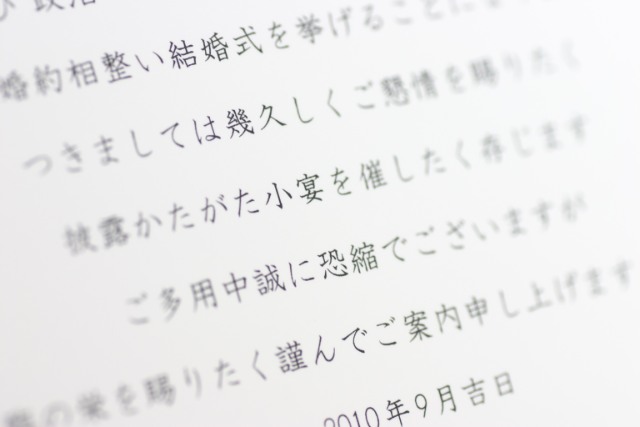 婚約相整い結婚式を挙げることに
つきましては幾久しくご懇情を賜りたく
披露かたがた小宴を催したく存じます
ご多用中誠に恐縮でございますが
の栄を賜りたく謹んでご案内申し上げます
2010年9月吉日